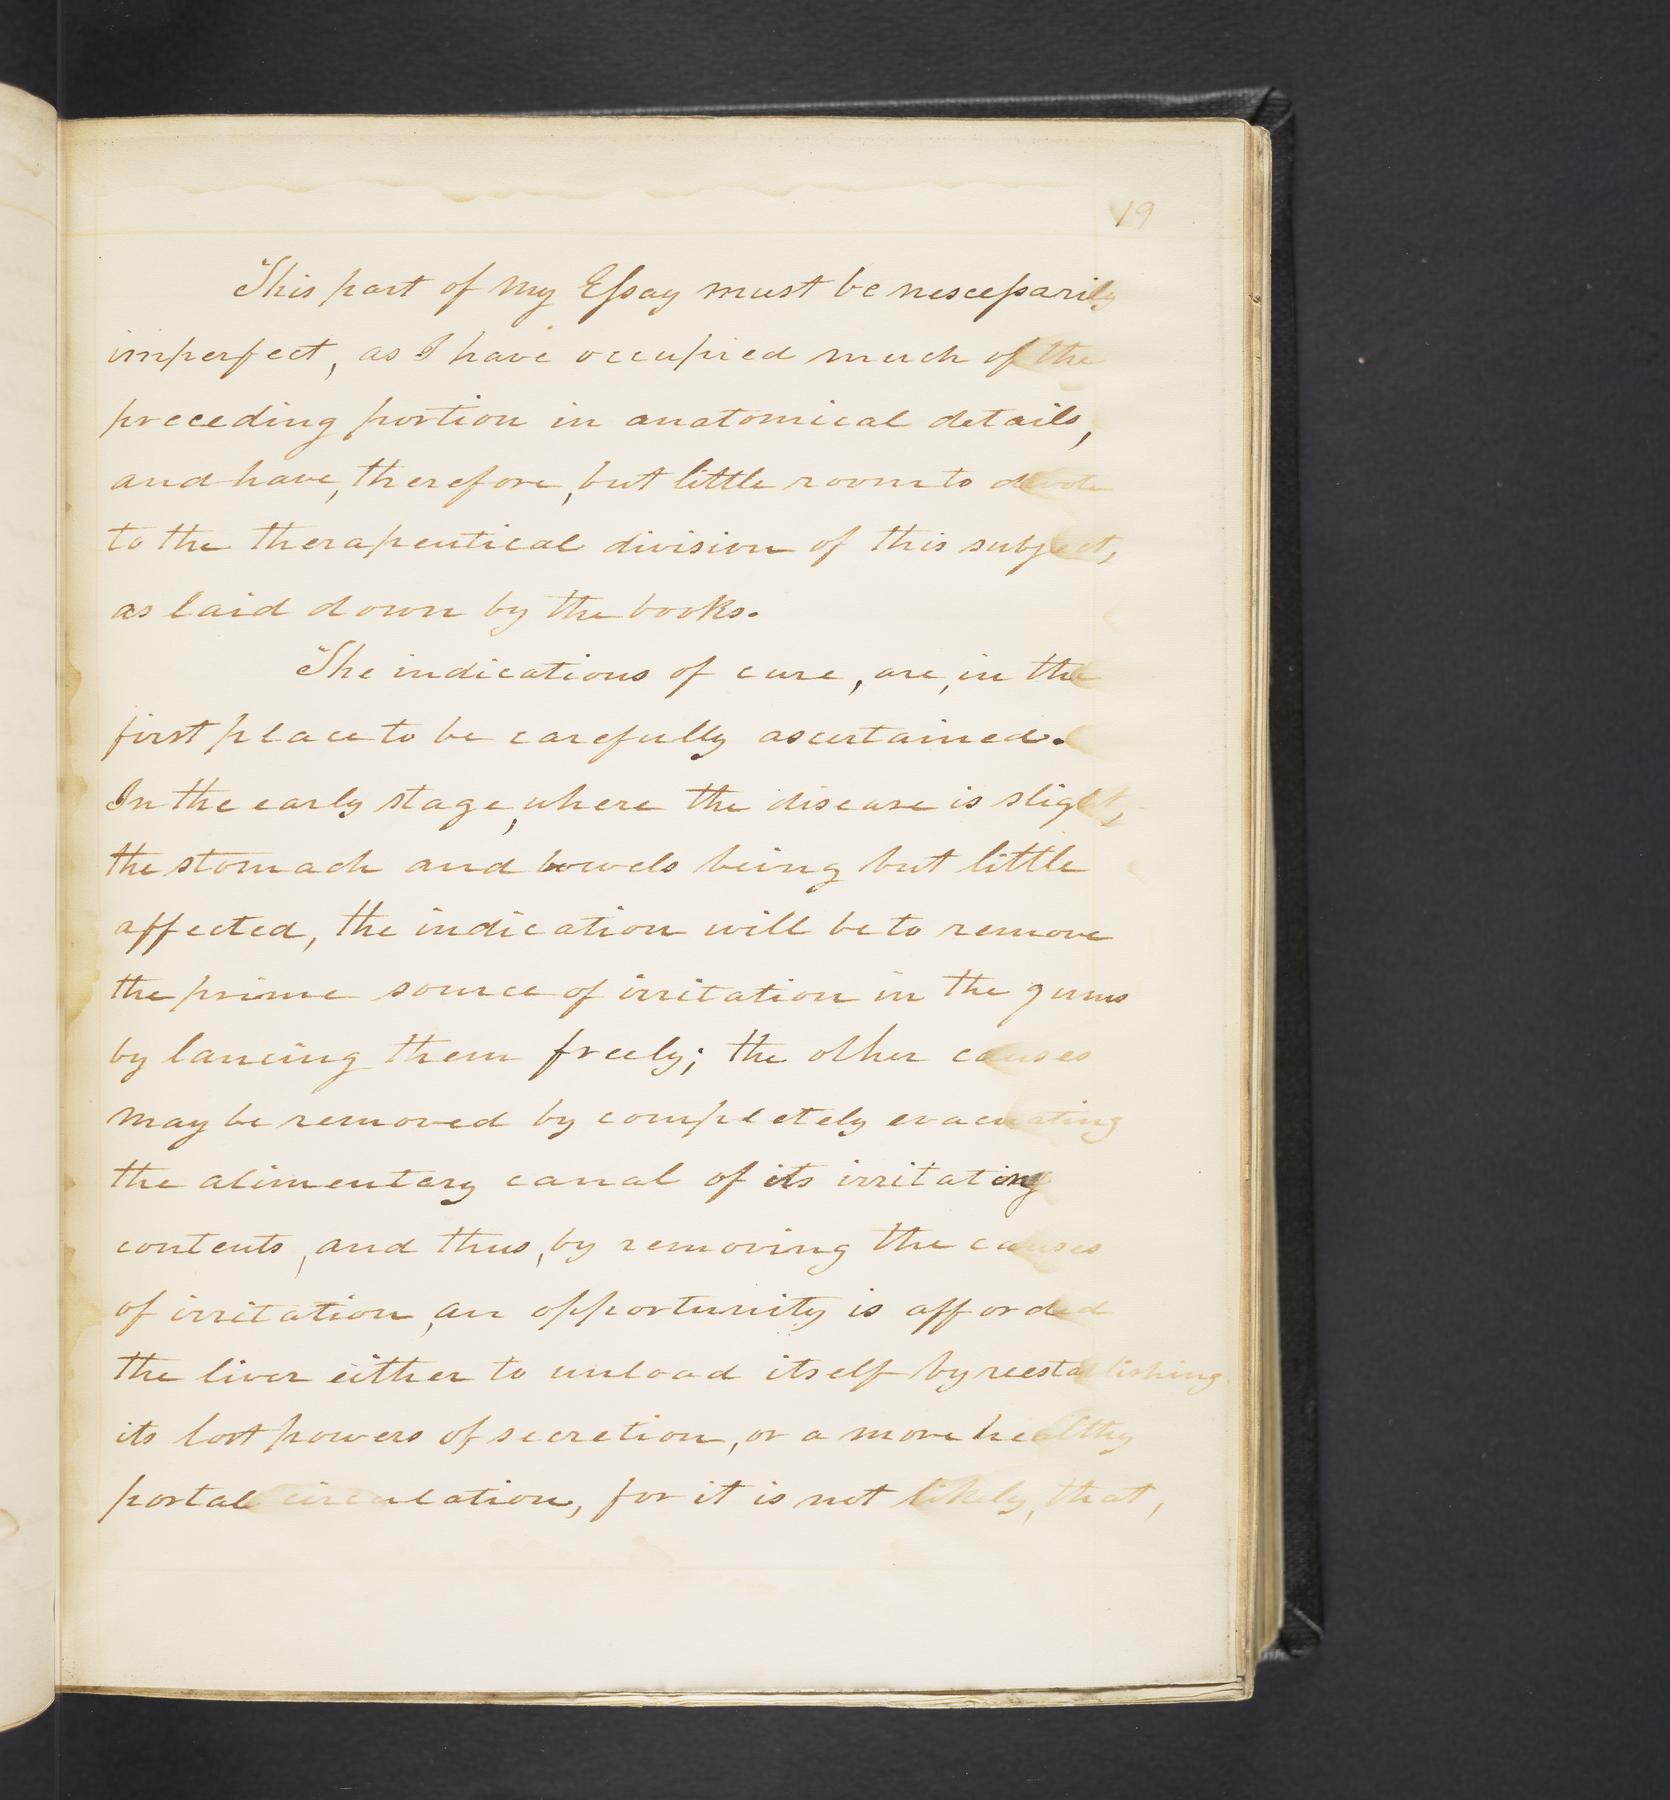 19
This part of my Essay must be nescessarily
imperfect, as I have occupied much of the
preceding portion in anatomical details,
and have, therefore, but little room to devote
to the therapeutical division of this subject,
as laid down by the books.
The indications of cure, are, in the
first place to be carefully ascertained.
In the early stage, where the disease is slight,
the stomach and bowels being but little
affected, the indication will be to remove
the prime source of irritation in the gums
by lancing them freely; the other causes
may be removed by completely evacuating
the alimentary canal of its irritating
contents, and thus, by removing the causes
of irritation, an opportunity is afforded
the liver either to unload itself by reestablishing
its lost powers of secretion, or a more healthy
portal circulation, for it is not likely, that,